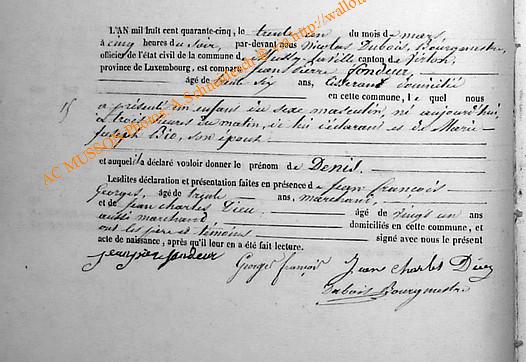 L'AN mil huit cent quarante-cinq, le trente un du mois de mars
à cinq heures du soir, par-devant nous Nicolas Dubois, Bourgmestre,
officier de l'état civil de la commune de Mussy-la-Ville canton de Virton,
province de Luxembourg, est comparu Jean Pierre Fondeur
âgé de trente six ans, domicilié
en cette commune, lequel nous
15
a présenté un enfant du sexe masculin, né aujourd'hui,
à trois heures du matin, de lui déclarant et de Marie
Joseph Bie, son épouse
et auquel il a déclaré vouloir donner le prénom de Denis.
Lesdites déclaration et présentation faites en présence de Jean François
Georges, âgé de trente ans, marchand,
et de Jean Charles Dieu âgé de vingt un ans
aussi marchand domiciliés en cette commune, et
ont les père et témoins signé avec nous le présent
acte de naissance, après qu'il leur en a été fait lecture.
jean piere fondeur
Georges françois
Jean Charles Dieu
Dubois Bourgmestre
AC MUSSON Photos A.Schneider http://wallo